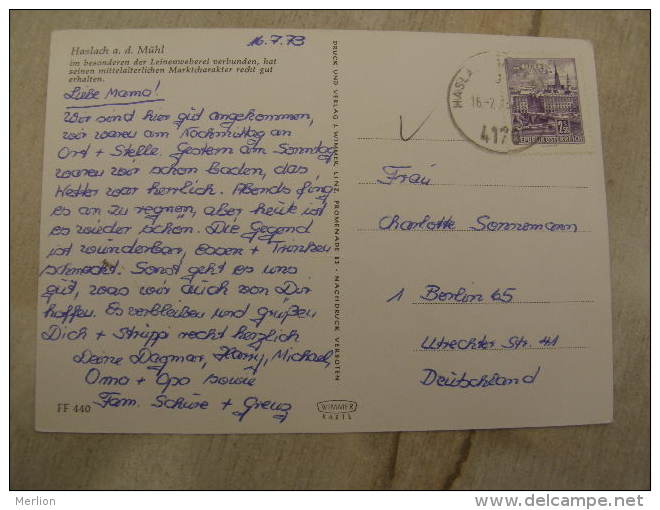 16.7.73
Haslach a. d. Mühl
im besonderen der Leinenweberei verbunden, hat
seinen mittelalterlichen Marktcharakter recht gut
erhalten.
Liebe Mama!
Wir sind hier gut angekommen,
wir waren am Nachmittag an
Ort + Stelle. Gestern am Sonntag
waren wir schon baden, das
Wetter war herrlich. Abends fing
es an zu regnen, aber heute ist
es wieder schön. Die Gegend
ist wunderbar, Essen + Trinken
schmeckt. Sonst geht es uns
gut, was wir auch von Dir
hoffen. Es verbleiben und grüßen
Dich + Struppi recht herzlich
Deine Dagmar, Harry, Michael,
Oma + Opa sowie
Fam. Schüre + Greuz
FF 440
DRUCK UND VERLAG J. WIMMER, LINZ, PROMENADE 23 · NACHDRUCK VERBOTEN
WIMMER
KARTE
HASL
16.-7.73
417
2.50
REPUBLIK ÖSTERREICH
Frau
Charlotte Sonnemann
1 Berlin 65
Utrechter Str. 41
Deutschland
Merlion
www.delcampe.net